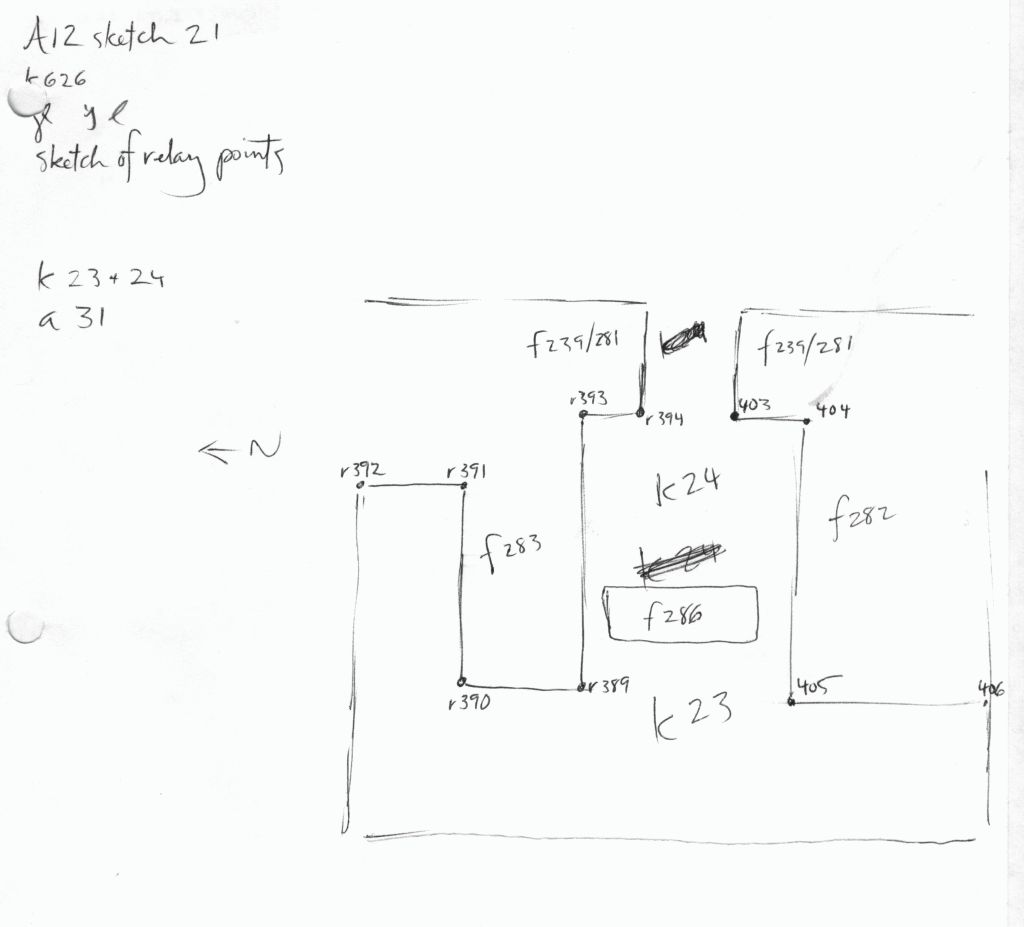 A12 sketch 21
k626
sketch of relay points
k 23 + 24
a 31
f239/281
f239/281
r393
r394
403
404
← N
r392
r391
k24
f282
f283
f286
r389
r390
k23
405
406